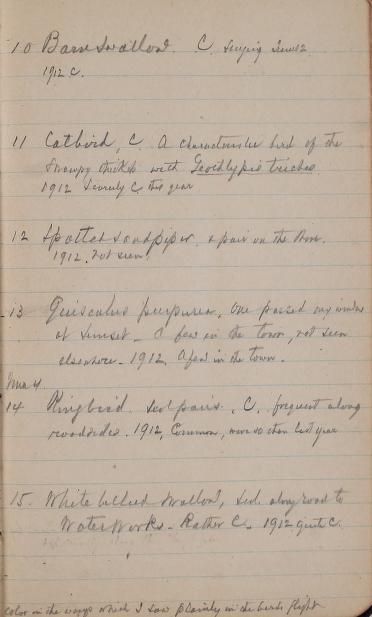 10 Barn Swallow. C. Singing June 2
1912 C.
11 Catbird, C. A characteristic bird of the
Swampy thickets with Geothlypis trichas
1912 Scarcely C this year
12 Spotted Sandpiper, a pair on the River.
1912. not seen
13 Quiscalus purpureus, One passed my window
at Sunset - A few in the town, not seen
elsewhere - 1912, A few in the town.
June 4.
14 Kingbird. Sev. pairs. C. frequent along
roadsides. 1912, Common, more so than last year
15. White bellied Swallow, Sev. along road to
Water Works - Rather C. 1912 quite C.
color in the wings which I saw plainly in the birds flight